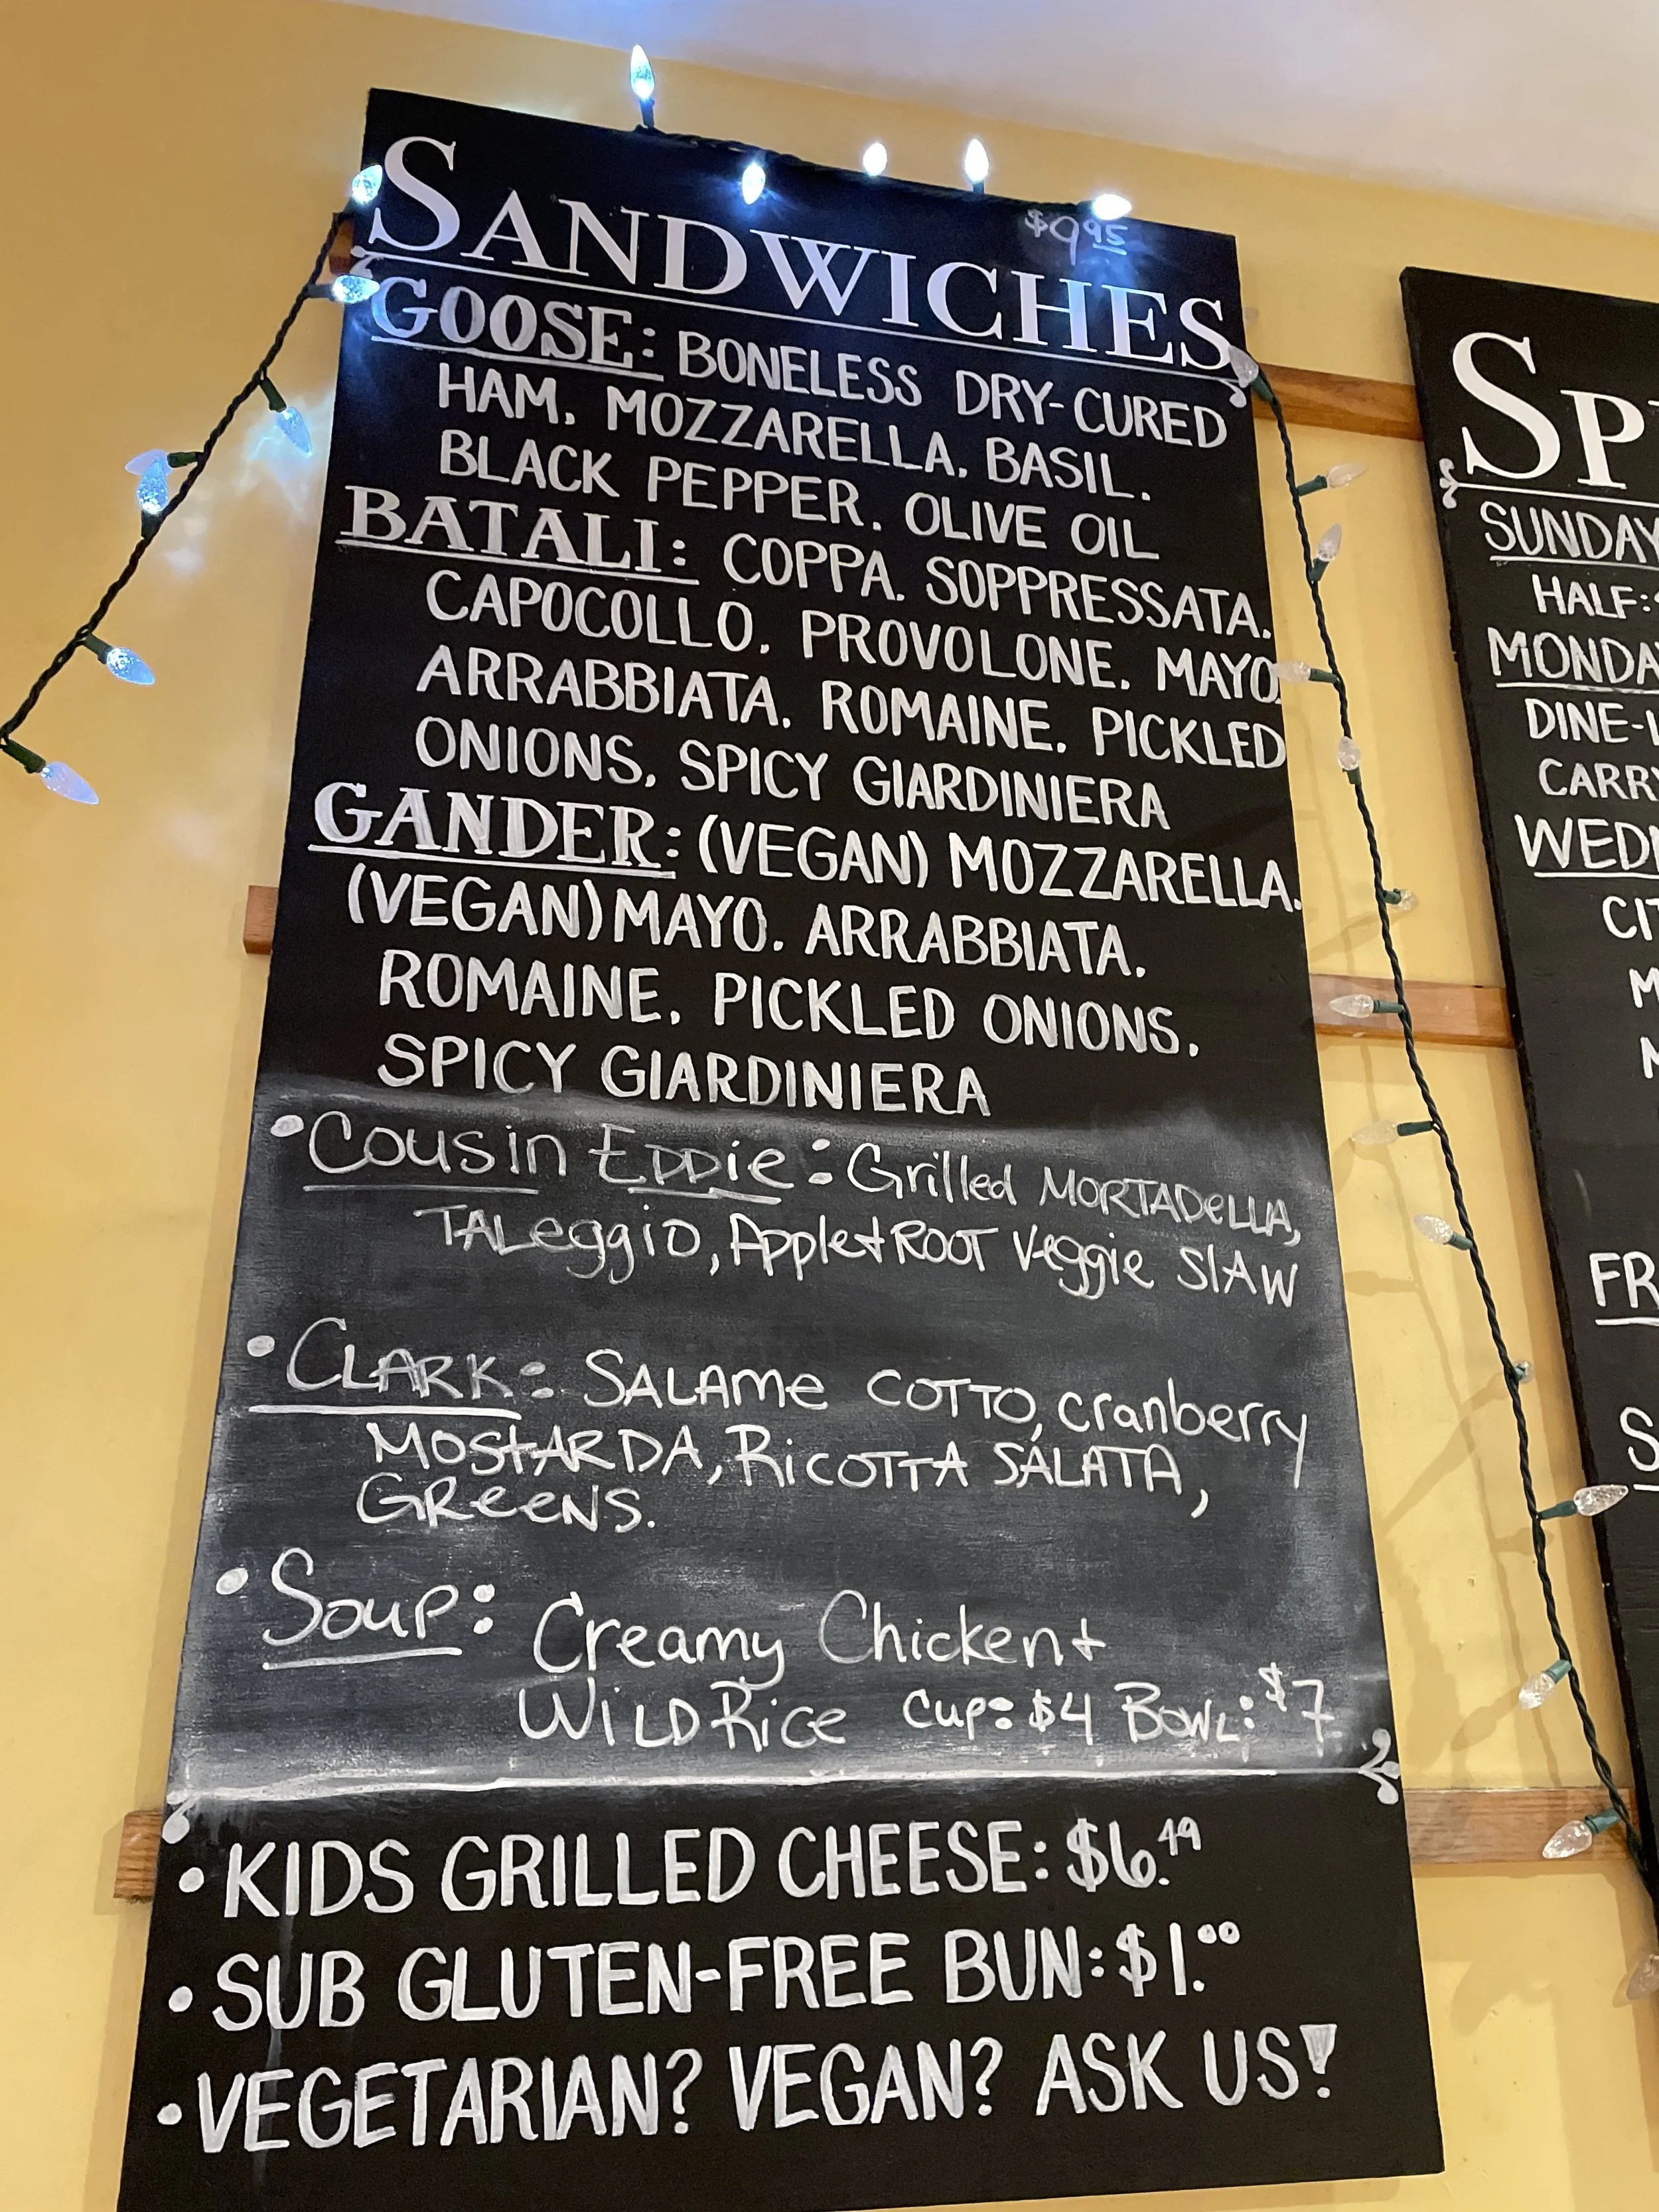 SANDWICHES $9.95
GOOSE: BONELESS DRY-CURED
HAM. MOZZARELLA. BASIL.
BLACK PEPPER. OLIVE OIL
BATALI: COPPA. SOPPRESSATA.
CAPOCOLLO. PROVOLONE. MAYO.
ARRABBIATA. ROMAINE. PICKLED
ONIONS. SPICY GIARDINIERA
GANDER: (VEGAN) MOZZARELLA.
(VEGAN) MAYO. ARRABBIATA.
ROMAINE. PICKLED ONIONS.
SPICY GIARDINIERA
• Cousin Eddie: Grilled MORTADeLLA,
TALeggiO, Apple + ROOT Veggie SlAW
• CLARK: SALAMe COTTO, cranberry
MOStARDA, RiCOTTA SALATA,
GReeNS.
• Soup: Creamy Chicken +
WiLD Rice Cup: $4 BOWL: $7
• KIDS GRILLED CHEESE: $6.49
• SUB GLUTEN-FREE BUN: $1.00
• VEGETARIAN? VEGAN? ASK US!
SUNDAY
HALF:
MONDA
DINE-I
CARRY
WED
CIT
M
M
FR
S